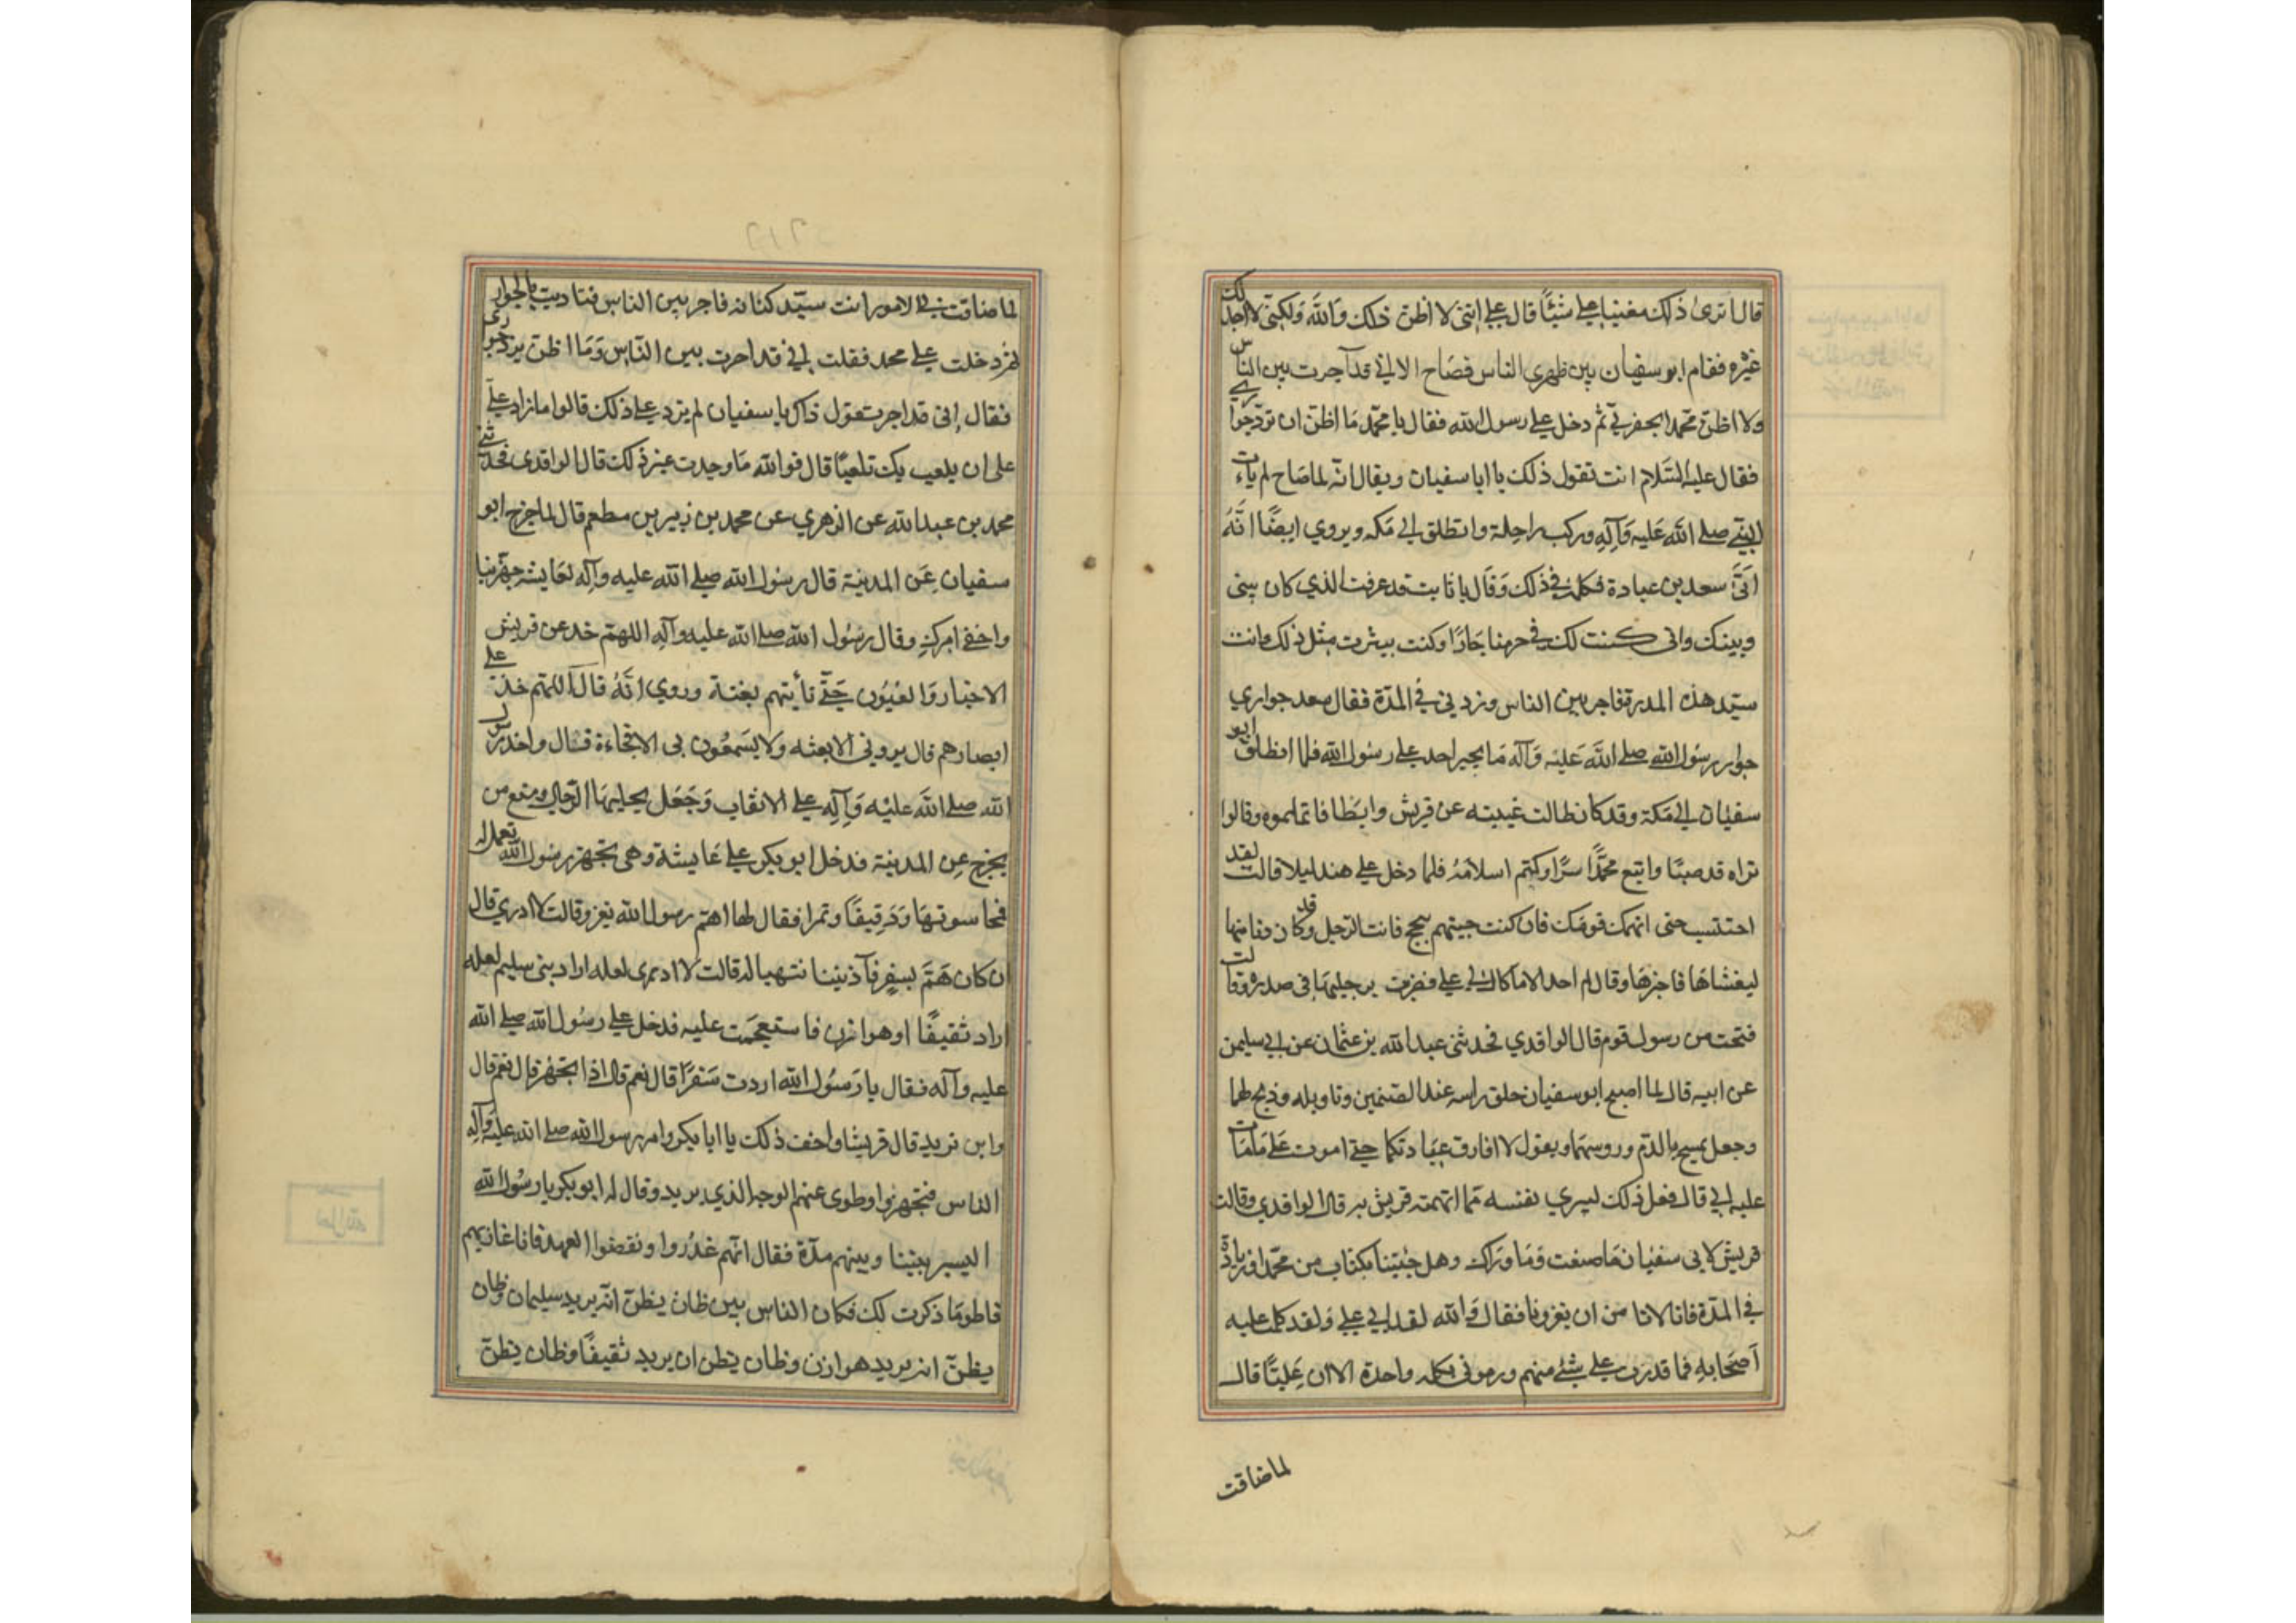 قال اترى ذلك مغنيا علي شيئًا قال علي انني لا اظن ذلك وَاللهَ وَلكنّي لا اجد لك
غيْره فقام ابو سفيان بين ظهري الناس فصَاح الا اني قد آجرت بين الناس
ولا اظن محمّد ايخفرني ثم دخل علي رسول الله فقال يا محمّد مَا اظنّ ان تردّ جواري
فقال عليه السّلام انت تقول ذلك يا ابا سفيان ويقال انّه لما صَاح لم يأت
النبي صلي الله عَليه وَآلهِ وركب راحلة وانطلق الي مَكه ويروي ايضًا انَّهُ
اَتَى سعد بن عبادة فكلمه في ذلك وَقال يا ثابت قد عرفت الذي كان بيني
وبينك واني كنت لك في حرمنا جَارًا وكنت بيثرب مثل ذلك وانت
سيّد هذه المدرة فاجر بين الناس وزدني في المدّة فقال سعد جواري
جوار رسُول الله صلي اللهَ عَليْه وَآله مَا يجير احد علي رسُول الله فلما انطلق ابو
سفيان الي مَكة وقد كان طالت غيبته عن قريش وابطَا فاتهموه وقالوا
نراه قد صبَا واتبع محمّدًا سرًّا وكتم اسلامَهُ فلما دخل علي هند ليلا قالت لقد
احتبست حتى اتهمك قومك فان كنت جيتهم بنجح فانت الرّجل وقد كان دنا منها
ليغشاهَا فاخبرهَا وقال لم اجد الا مَا قال لي علي فضربت برجليهَا في صدرهْ وقالت
قبّحت من رسول قوم قال الواقدي فحدثني عبد الله بن عثمان عن ابي سليمن
عن ابيه قال لما اصبح ابو سفيان حلق راسه عند الصنمين ونايله وذبح لهما
وجعل يمسح بالدّم وروسهمَا ويقول لا افارق عبَادتكما حتي اموت عَلي مَا مَات
عليه ابي قال فعل ذلك ليبري نفسه ممّا اتهمته قريش به قال الواقدي وقالت
قريش لابي سفيَان مَا صنعت وَمَا وَراك وهل جئتنا بكتاب من محمّد او زيادة
في المدّة فانا لانا من ان يغزونا فقال وَالله لقد ابي علي وَلقد كلمت عليه
اَصحَابه فما قدرت علي شئ منهم ورموني بكلمه واحدة الا ان عَليّاً قال
لما ضاقت
لما ضاقت بي الامور انت سيّد كنانه فاجر بين الناس فناديت بالجوار
ثمّ دخلت علي محمد فقلت اني قد اجرت بين النّاس وَمَا اظن يرد جواري
فقال إني قد اجرت تقول ذاك يا با سفيان لم يزد علي ذلك قالوا ما زاد علي
على ان يلعب بك تلعبًا قال فوالله مَا وجدت غير ذلك قال الواقدي فحدّثني
محمد بن عبد الله عن الزهري عن محمد بن زبير بن مطعم قال لما خرج ابو
سفيان عَن المدينة قال رسُول الله صلي الله عليه وآله لعَايشه جهّزينا
واخفي امرك وقال رسُول الله صلي الله عليه وآله اللهمّ خذ عن قريش
الاخبار وَالعيُون حَتّي نأيتهم بغتة وروي انَّهُ قال اللهّم خذ علي
ابصارهم فال يروني الا بغته ولا يسَمعُون بي الا فجاءة قال واخذ رسول
الله صلي اللهَ عليْه وَآلهِ علي الانقاب وَجَعَل عليهَا الرّجال ومنع من
يخرج عن المدينة فدخل ابو بكر علي عَايشة وهي تجهز رسُول الله تعمل له
قمحا سوتهَا وَدَقيقًا وتمرا فقال لها اهمّ رسول الله بغزو قالت لا ادري قال
ان كان هَمّ بسفر فآذنينا نتهيا له قالت لا ادري لعله اراد بني سليم لعله
اراد ثقيفًا او هوازن فاستعجمت عليه فدخل علي رسُول الله صلي الله
عليه وآله فقال يا رَسُول الله اردت سَفرًا قال نعم قال اذا اتجهز قال نعم قال
واين تريد قال قريشا واخف ذلك يا ابا بكر وامر رسول الله صلي الله عليْه وَآله
الناس فتجهزوا وطوى عنهم الوجه الذي يريد وقال له ابو بكر يا رسُول الله
اليسر بيننا وبينهم مدّة فقال انهّم غدُروا ونقضوا العهد فانا غازيهم
فاطو مَا ذكرت لك فكان الناس بين ظان يظن انّه يريد سليمان وظان
يظنّ انه يريد هوازن وظان يظن ان يريد ثقيفًا وظان يظن